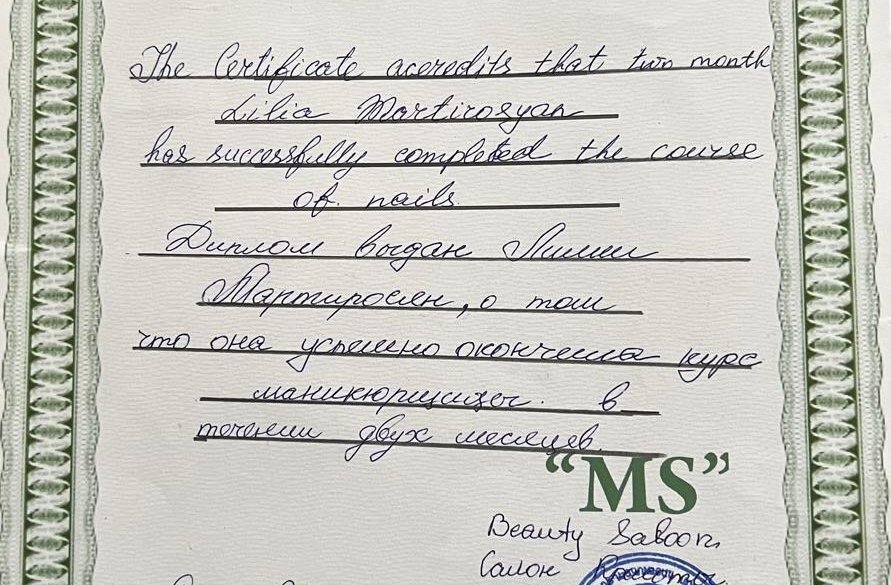 The Certificate aceredits that two month
Lilia Martirosyan
has successfully completed the course
of nails.
Диплом выдан Лилии
Мартиросян, о том
что она успешно окончила курс
маникюрщицы. в
течении двух месяцев.
“MS”
Beauty Saloon,
Салон Красоты